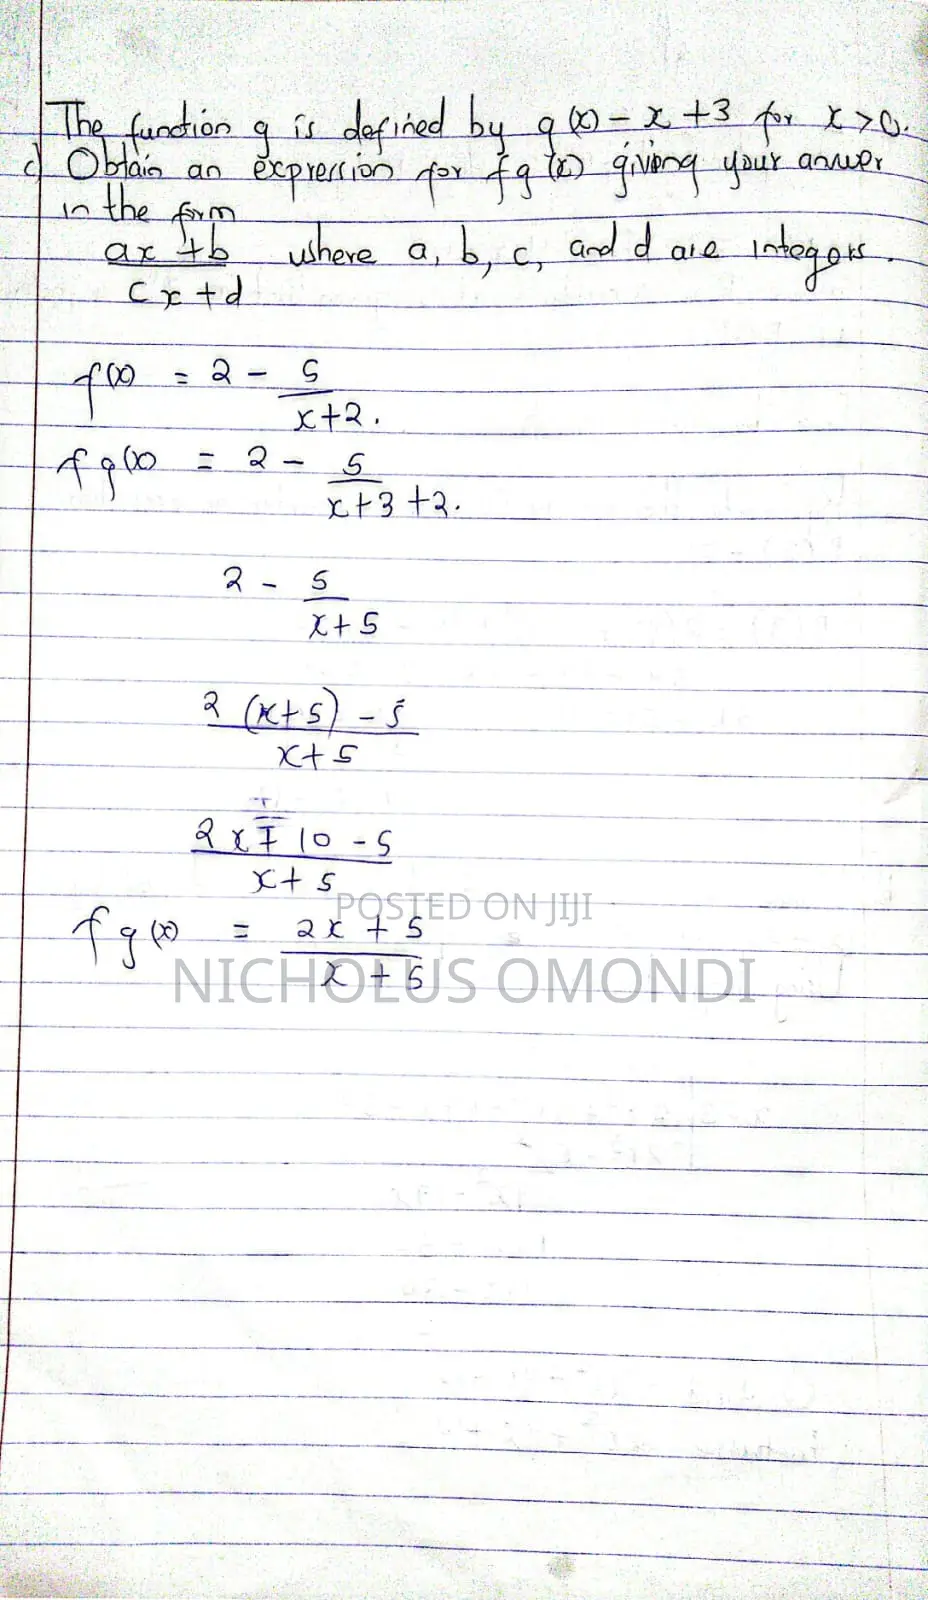 The function g is defined by g(x) - x + 3 for x > 0.
c) Obtain an expression for fg(x) giving your answer
in the form
ax + b where a, b, c, and d are integers.
cx + d
f(x) = 2 - 5
x+2.
fg(x) = 2 - 5
x+3 +2.
2 - 5
x+5
2 (x+5) - 5
x+5
2x + 10 - 5
x+5
POSTED ON JIJI
fg(x) = 2x + 5
x + 5
NICHOLUS OMONDI